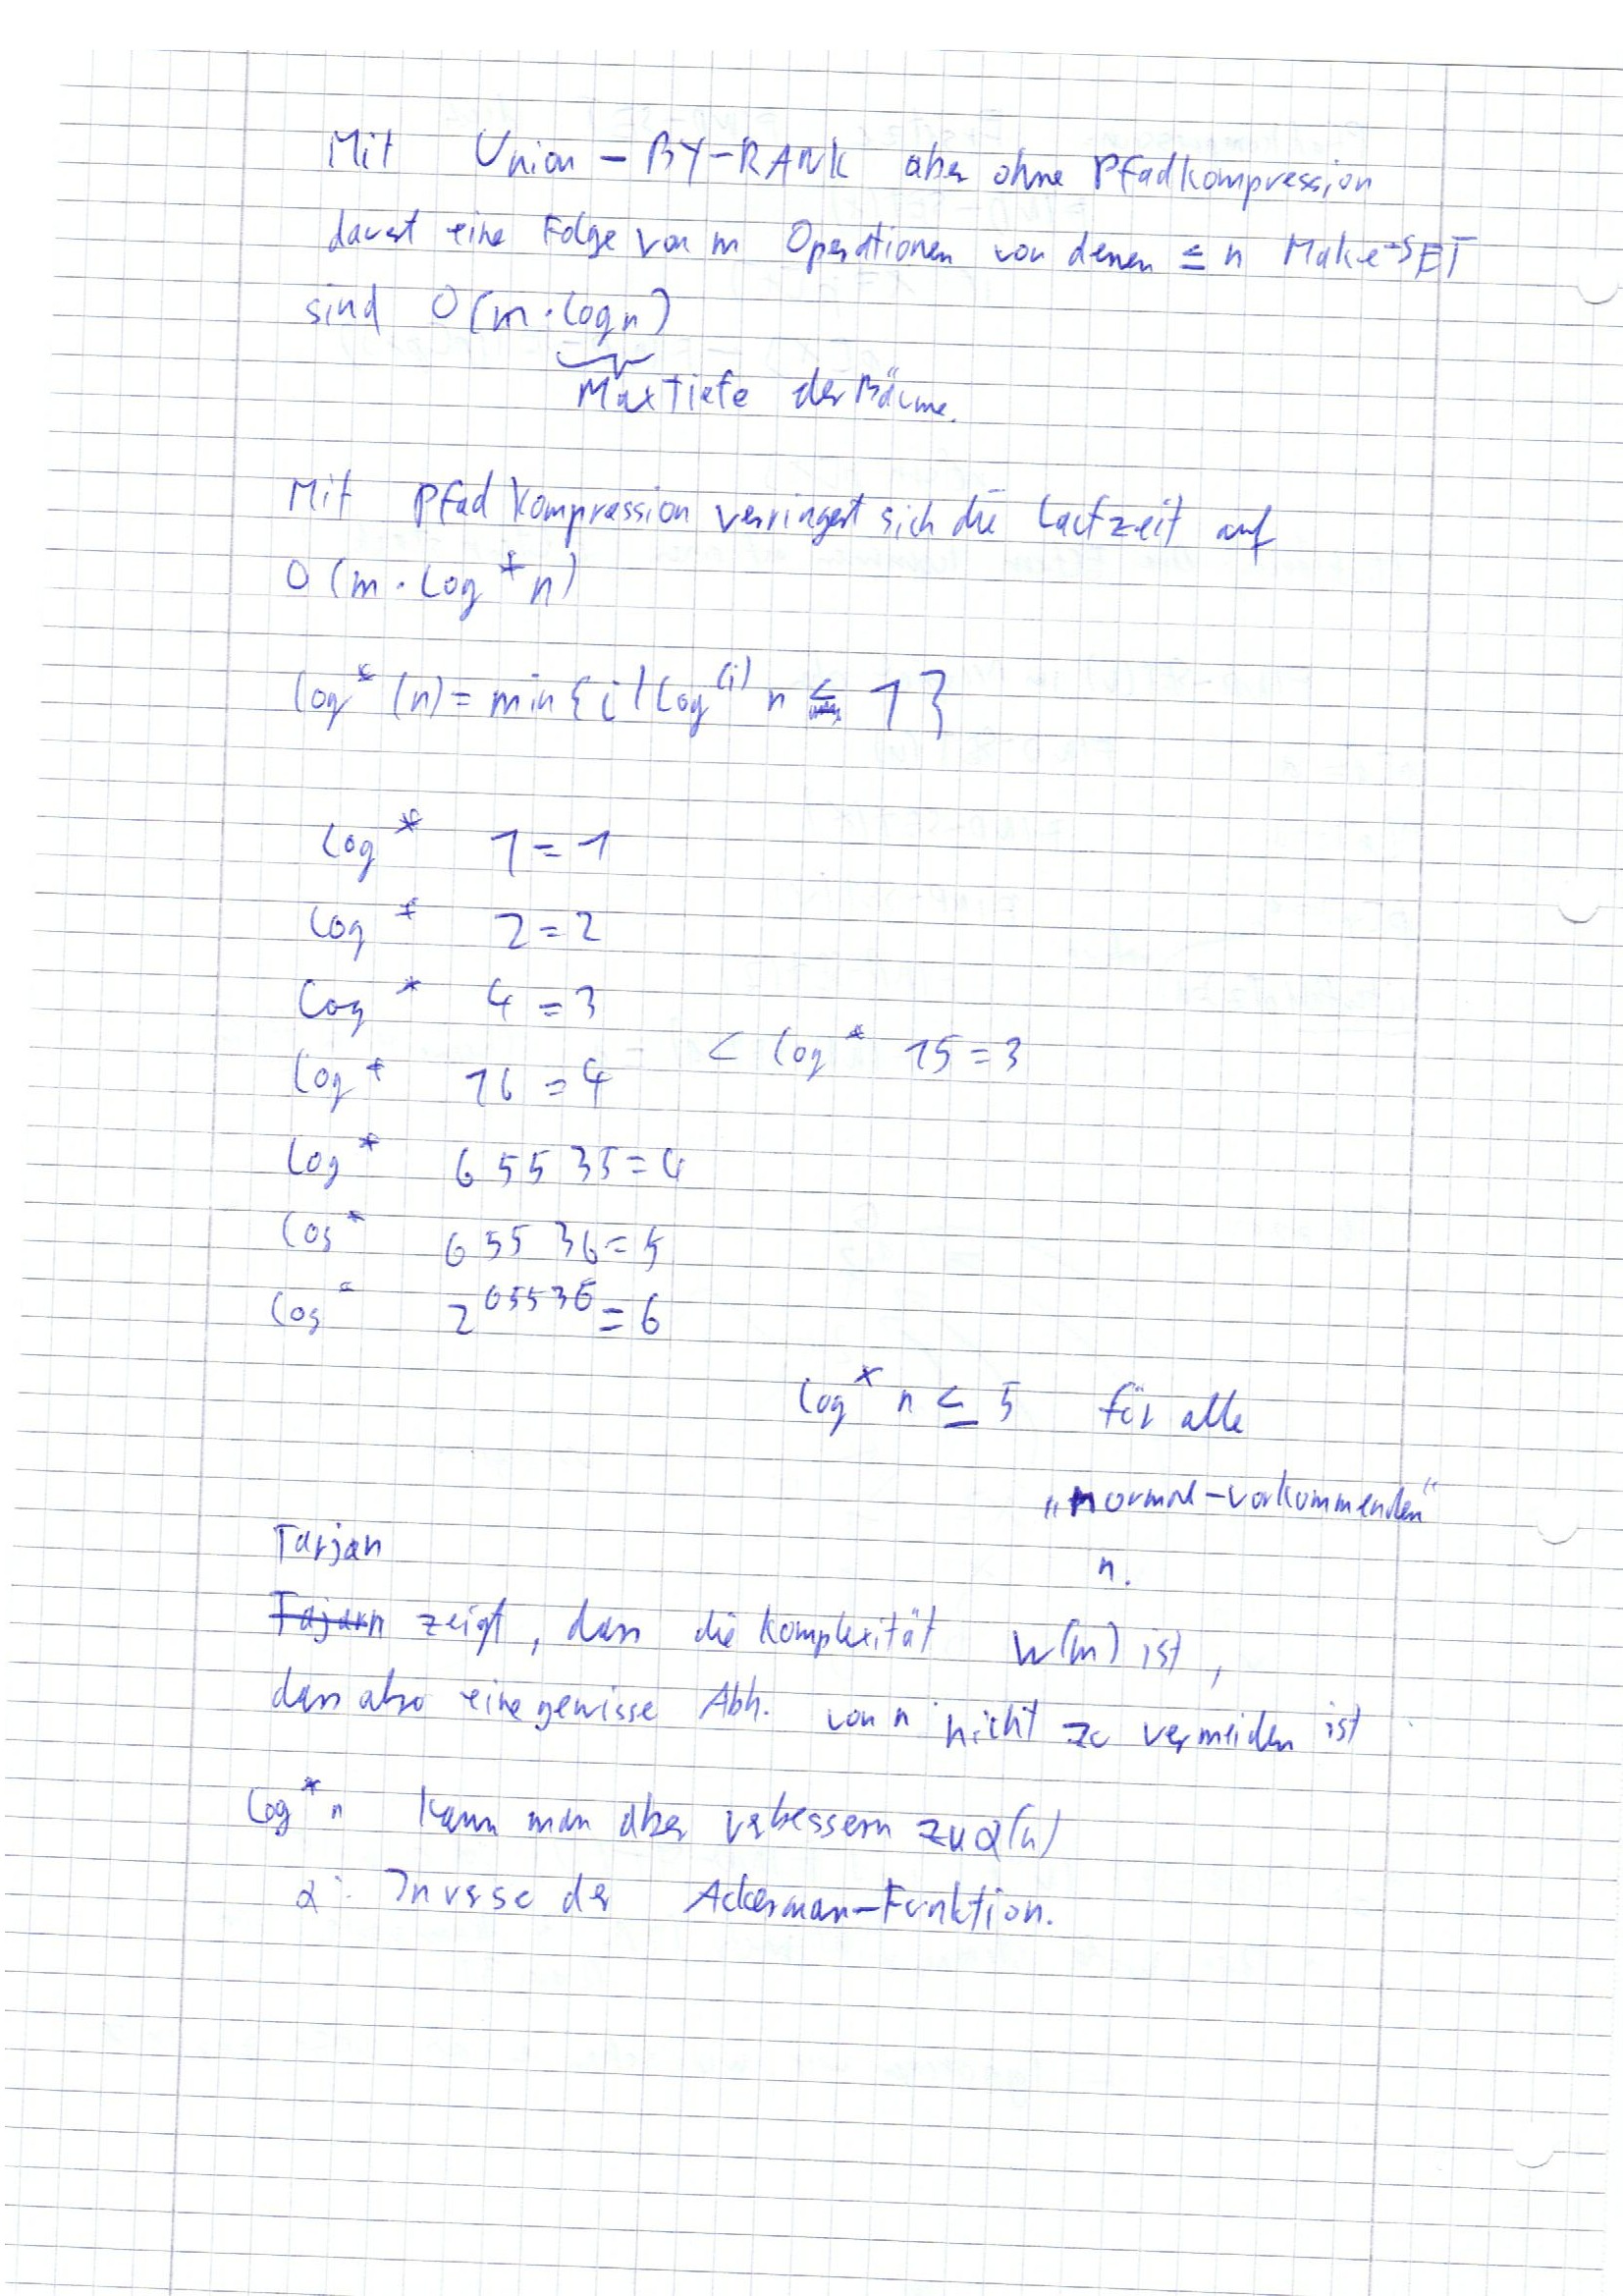 Mit Union-BY-RANK aber ohne Pfadkompression
dauert eine Folge von m Operationen von denen ≤ n Make-SET
sind O(m·log n)
Max Tiefe der Bäume.
Mit Pfadkompression verringert sich die Laufzeit auf
O(m·log* n)
log*(n) = min{i | log^(i) n ≤ 1}
log* 1 = 1
log* 2 = 2
log* 4 = 3
log* 16 = 4 < log* 15 = 3
log* 65535 = 4
log* 65536 = 5
log* 2^65536 = 6
log* n ≤ 5 für alle
„normal-vorkommenden“
n.
Tarjan
Tajarn zeigt, dass die Komplexität ω(m) ist,
dass also eine gewisse Abh. von n nicht zu vermeiden ist
log* n kann man aber verbessern zu α(n)
α: Inverse der Ackerman-Funktion.